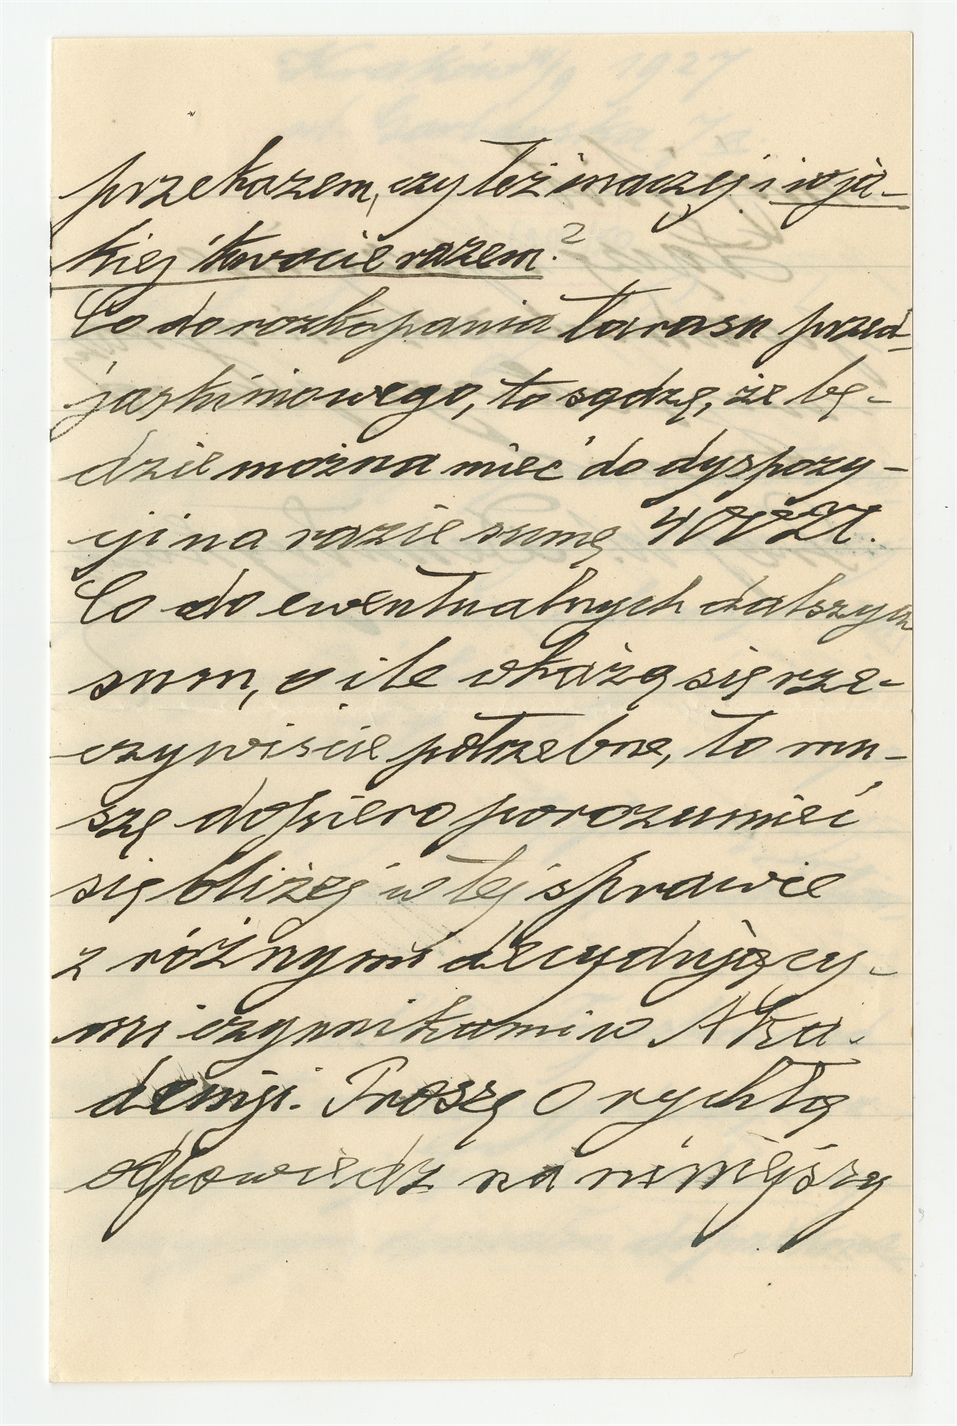 przekazem, czy też inaczej i w ja-
kiej kwocie razem?
Co do rozkopania tarasu przed-
jaskiniowego, to sądzę, że bę-
dzie można mieć do dyspozy-
cji na razie sumę 400 Zł.
Co do ewentualnych dalszych
sum, o ile okażą się rze-
czywiście potrzebne, to mu-
szę dopiero porozumieć
się bliżej w tej sprawie
z różnymi decydujący-
mi czynnikami w Aka-
demji. Proszę o rychłą
odpowiedz na niniejszy